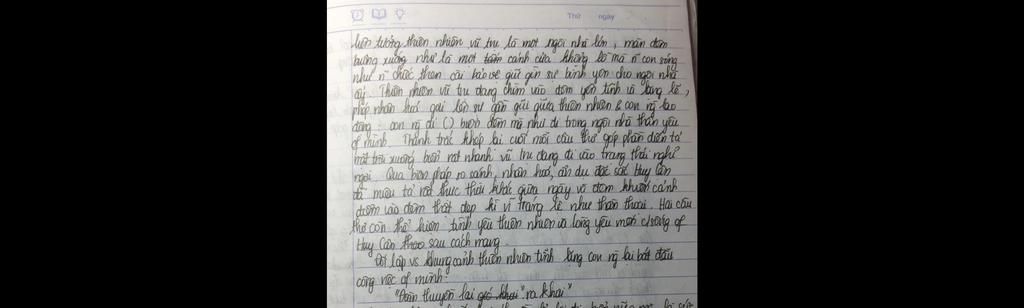 Thứ ngày
liên tưởng thiên nhiên vũ trụ là một ngôi nhà lớn, màn đêm
buông xuống như là một tấm cánh cửa khổng lồ mà n con sóng
như n chiếc then cài bảo vệ giữ gìn sự bình yên cho ngôi nhà
ấy. Thiên nhiên vũ trụ đang chìm vào đêm yên tĩnh và lặng lẽ,
phép nhân hoá gợi lên sự gần gũi giữa thiên nhiên & con ng lao
động: con ng đi () biển đêm mà như đi trong ngôi nhà thân yêu
of mình. Thanh trắc khép lại cuối mỗi câu thơ góp phần diễn tả
mặt trời xuống biển rất nhanh vũ trụ đang đi vào trạng thái nghỉ
ngơi. Qua biện pháp so sánh, nhân hoá, ẩn dụ đặc sắc Huy Cận
đã miêu tả rất thực thời khắc giữa ngày và đêm khiến cảnh
đêm vào đêm thật đẹp kì vĩ tráng lệ như thần thoại. Hai câu
thơ còn thể hiện tình yêu thiên nhiên và lòng yêu mến c/sống of
Huy Cận theo sau cách mạng.
Đối lập vs khung cảnh thiên nhiên tĩnh lặng con ng lại bắt đầu
công việc of mình:
"Đoàn thuyền lại gió khơi "ra khơi"